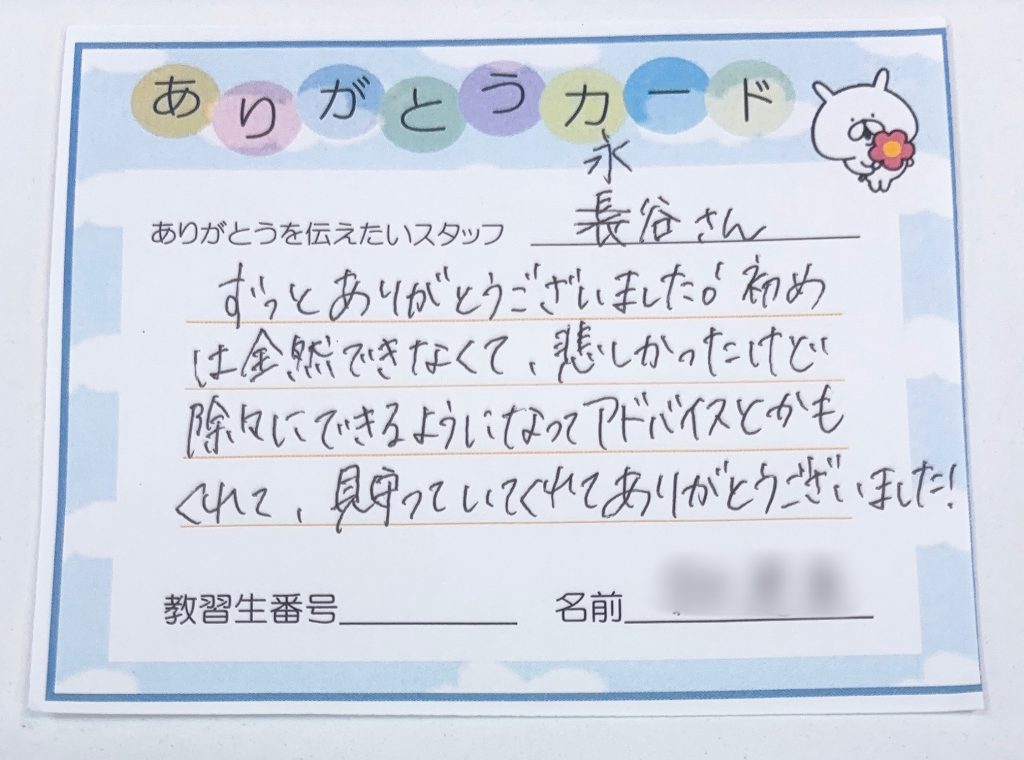 ありがとうカード
永
長谷さん
ありがとうを伝えたいスタッフ
ずっとありがとうございました。初め
は全然できなくて、悲しかったけど
除々にできるようになってアドバイスとかも
くれて、見守っていてくれてありがとうございました!
教習生番号
名前